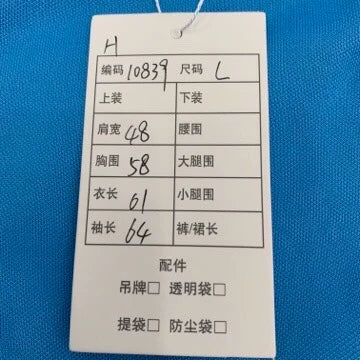 H
编码 10839 尺码 L
上装 下装
肩宽 48 腰围
胸围 58 大腿围
衣长 61 小腿围
袖长 64 裤/裙长
配件
吊牌□ 透明袋□
提袋□ 防尘袋□